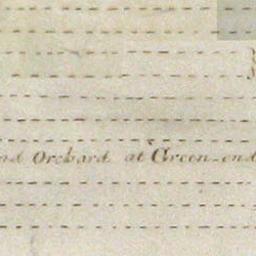 nd Orchard at Green-end